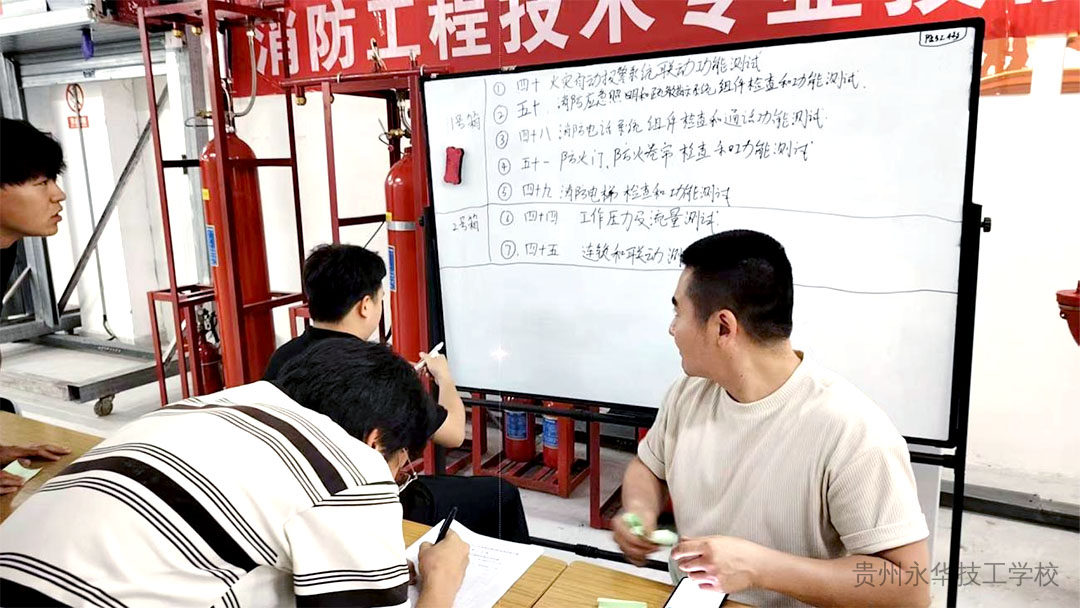 消防工程技术专业技
P252 423
1号箱
① 四十 火灾自动报警系统联动功能测试
② 五十. 消防应急照明和疏散指示系统,组件检查和功能测试.
③ 四十八 消防电话系统组件检查和通话功能测试
④ 五十一 防火门、防火卷帘检查和功能测试
⑤ 四十九 消防电梯检查和功能测试
2号箱
⑥ 四十四 工作压力及流量测试
⑦. 四十五 连锁和联动测
贵州永华技工学校